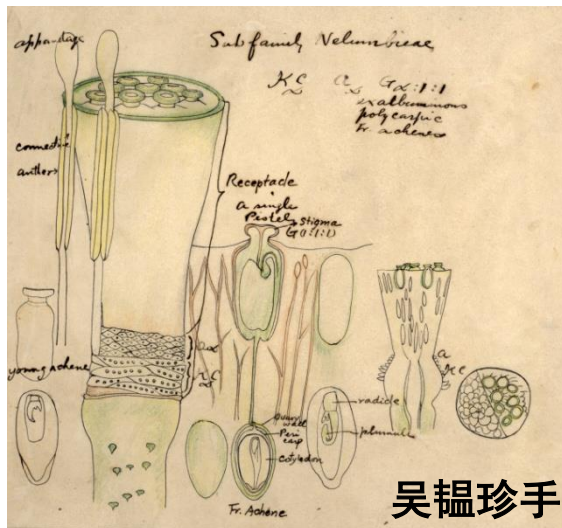 Subfamily Nelumbieae
appendage
K C A G∝:1:1
∝ ∝
exalbuminous
polycarpic
Fr. achenes
connective
anthers
Receptacle
a single
Pistel
Stigma
G 0:1:1)
A∝
K C
∝
young achene
A
K C
radicle
plumule
ovary
wall
Peri
carp
cotyledon
Fr. Achene
吴韫珍手